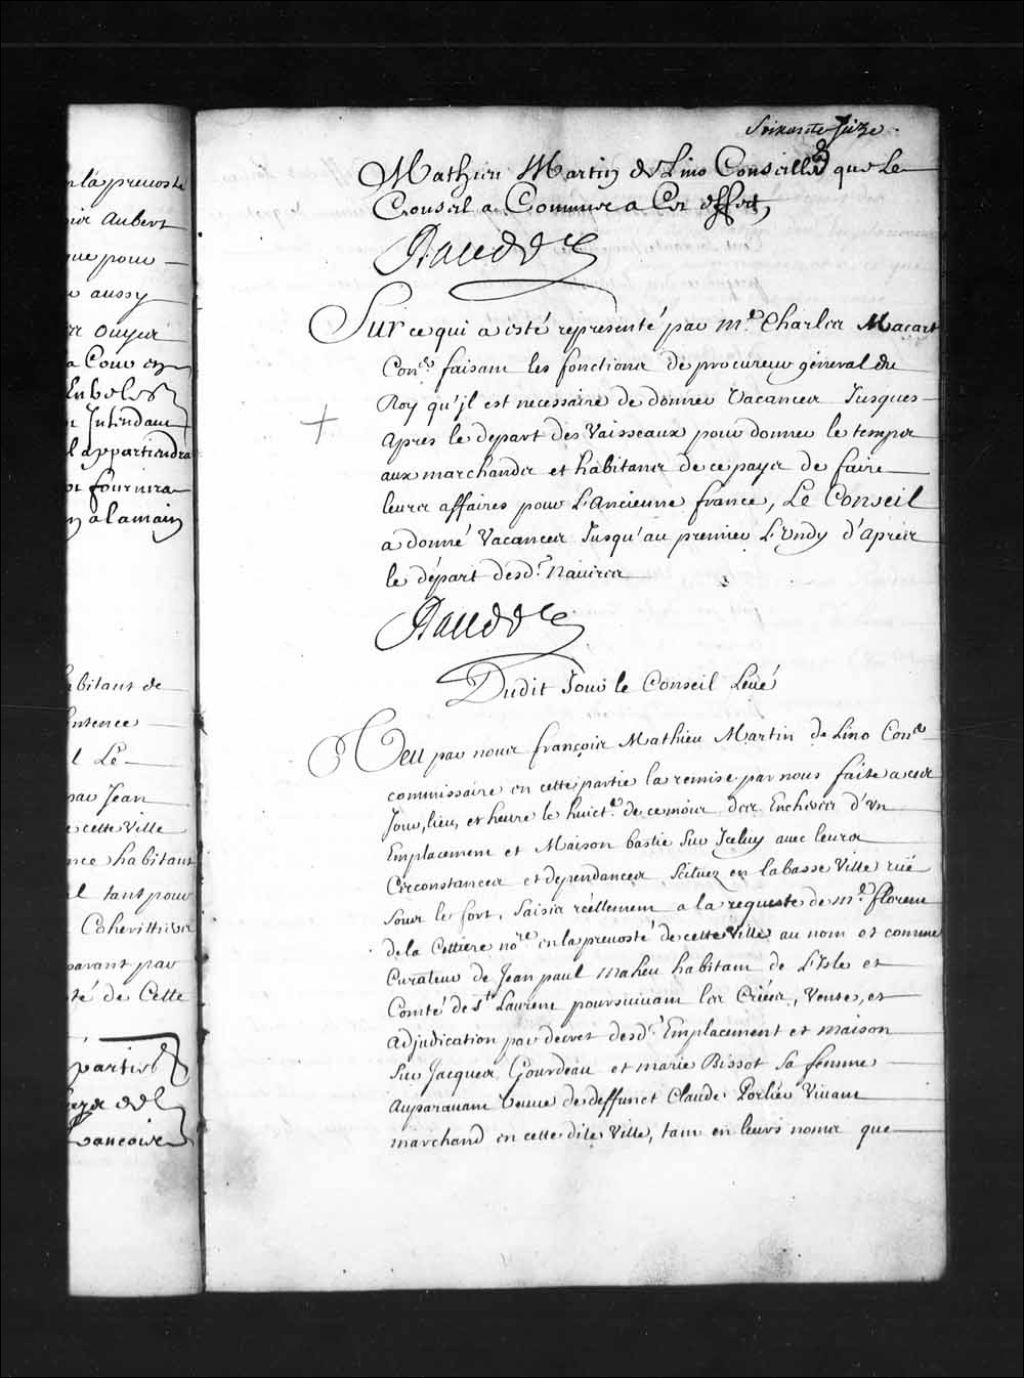 la prevosté
Aubert
que pour
aussy
ouyer
a Cour en
Intendant
l appartiendra
fournira
a la main
habitant de
sentence
l Le
par Jean
cette Ville
habitant
tant pour
avant par
té de Cette
partie
Soixante Seize
Mathieu Martin de Lino Conseiller que Le
Conseil a Commis a Cet effect,
Raudot
Sur ce qui a esté representé par Me. Charles Macart
Coner. faisant les fonctions de procureur general du
Roy qu'jl est necessaire de donner Vacances Jusques
apres le depart des Vaisseaux pour donner le temps
aux marchands et habitans de ce pays de faire
leurs affaires pour L'ancienne france, Le Conseil
a donné Vacances Jusqu'au premier Lundy d'apres
le départ desd. Navires
Raudot
Dudit Jour le Conseil Levé
Veu par nous françois Mathieu Martin de Lino Coner
commissaire en cette partie la remise par nous faite a ces
Jour, lieu, et heure le huicte. de ce mois des Encheres d'un
Emplacement et Maison bastie sur Jceluy avec leurs
Circonstances et dependances scituez en la basse Ville rüe
sous le fort, saisis réellement a la requeste de Me. florent
de la Cettiere nore. en la prevosté de cette Ville au nom et comme
Curateur de Jean paul maheu habitant de L'Isle et
Comté de St. Laurent poursuivant les Criées, Ventes, et
adjudication par decret desd. Emplacement et maison
sur Jacques Gourdeau et marie Bissot sa femme
auparavant veuve de deffunct Claude Porlier Vivant
marchand en cette dite Ville, tant en leurs noms que